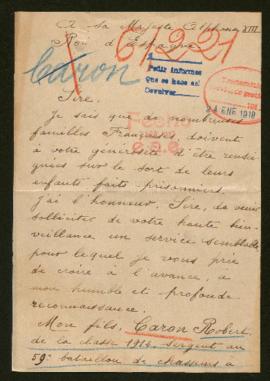 A Sa Majesté Alphonse XIII
Roi d'Espagne
61221
Caron
Pedir informes
Que se hace así
Devolver
24 ENE 1918
Sire,
Je sais que de nombreuses
familles Françaises doivent
à votre générosité d'être rensei-
gnées sur le sort de leurs
enfants faits prisonniers.
J'ai l'honneur, Sire, de venir
solliciter de votre haute bien-
veillance un service semblable
pour lequel je vous prie
de croire à l'avance, à
mon humble et profonde
reconnaissance.
Mon fils, Caron Robert,
de la classe 1914, sergent au
59e bataillon de chasseurs à